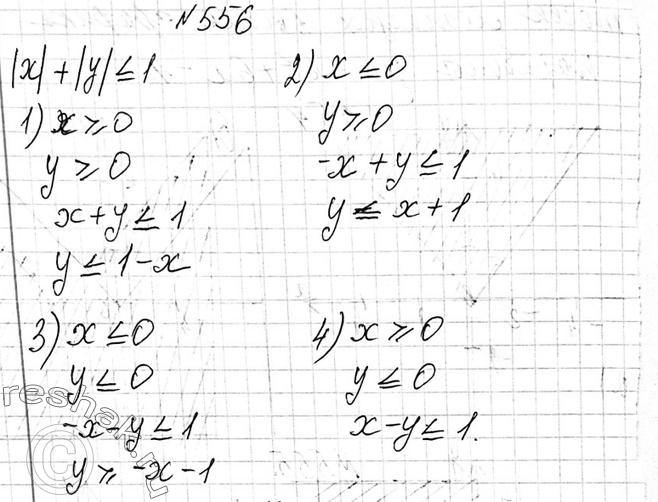 №556
|x|+|y|≤1
1) x⩾0
y⩾0
x+y≤1
y≤1-x
2) x≤0
y⩾0
-x+y≤1
y≤x+1
3) x≤0
y≤0
-x-y≤1
y⩾-x-1
4) x⩾0
y≤0
x-y≤1.